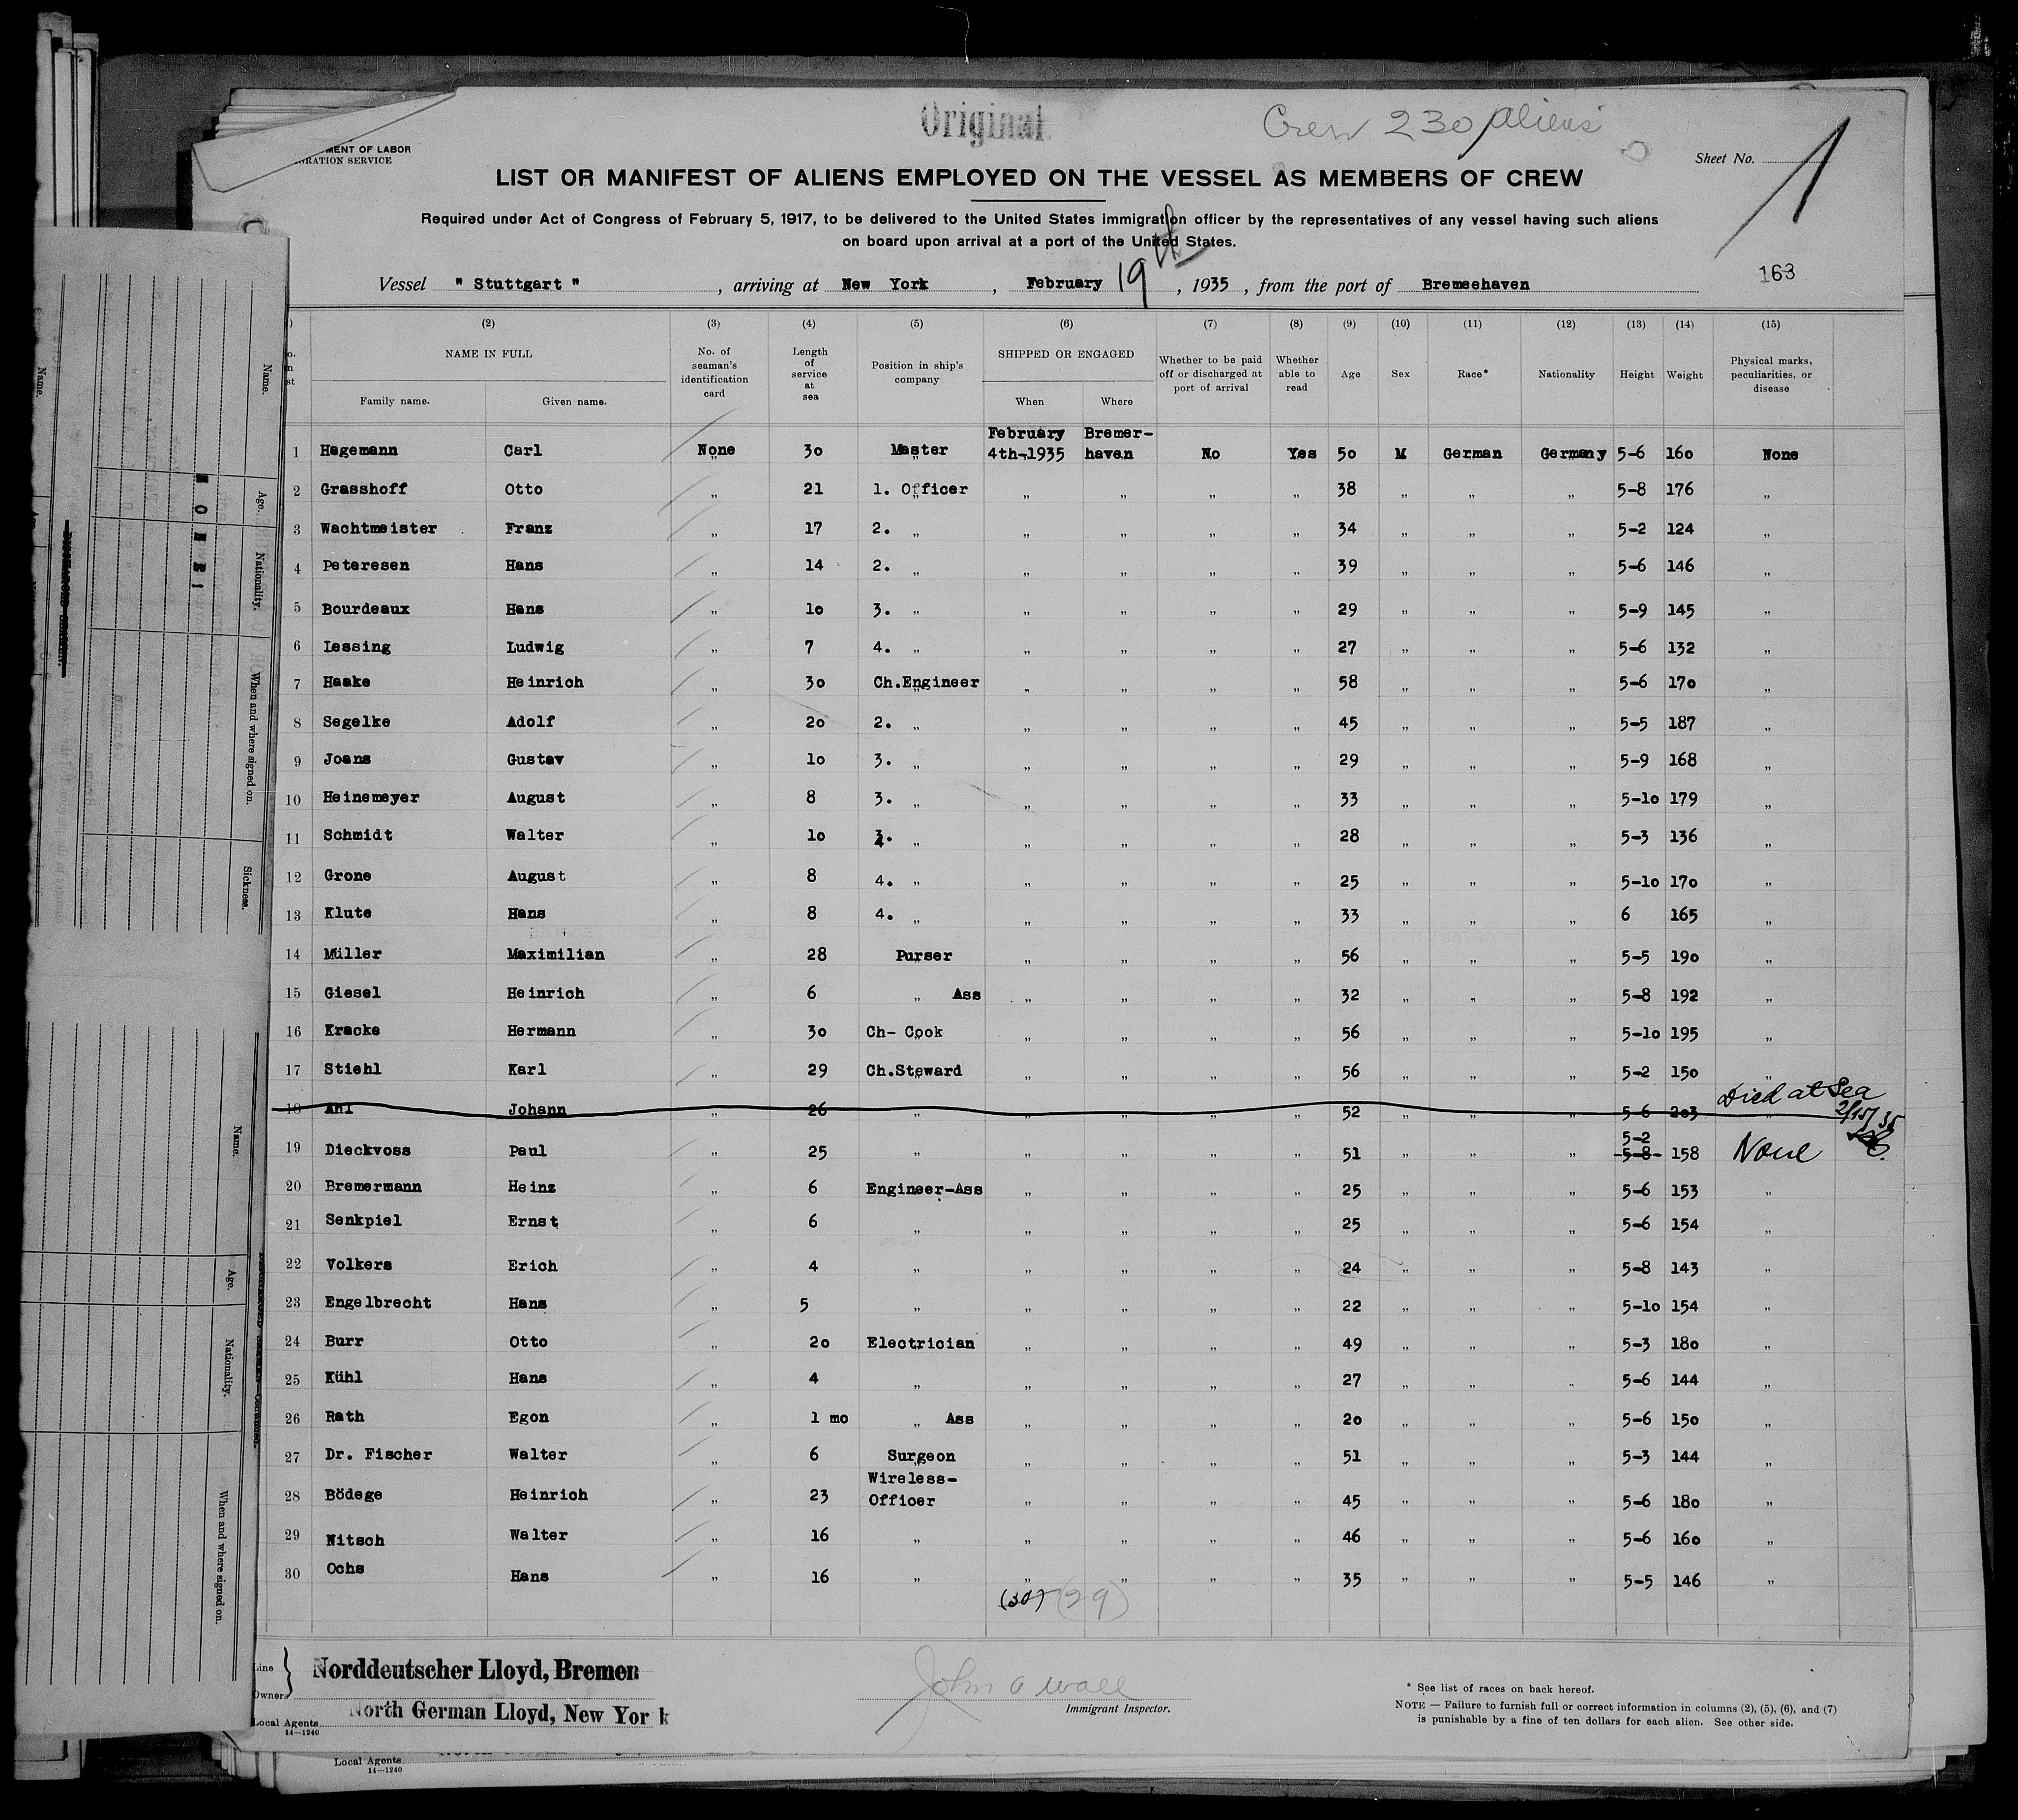 Original
Crew 230 Aliens
MENT OF LABOR
RATION SERVICE
Sheet No. 1
LIST OR MANIFEST OF ALIENS EMPLOYED ON THE VESSEL AS MEMBERS OF CREW
Required under Act of Congress of February 5, 1917, to be delivered to the United States immigration officer by the representatives of any vessel having such aliens
on board upon arrival at a port of the United States.
163
Vessel " Stuttgart " , arriving at New York , February 19th , 1935 , from the port of Bremeehaven
(2) (3) (4) (5) (6) (7) (8) (9) (10) (11) (12) (13) (14) (15)
NAME IN FULL Family name. Given name. No. of seaman's identification card Length of service at sea Position in ship's company SHIPPED OR ENGAGED When Where Whether to be paid off or discharged at port of arrival Whether able to read Age Sex Race* Nationality Height Weight Physical marks, peculiarities, or disease
1 Hagemann Carl None 30 Master February 4th-1935 Bremer-haven No Yes 50 M German Germany 5-6 160 None
2 Grasshoff Otto „ 21 1. Officer „ „ „ „ 38 „ „ „ 5-8 176 „
3 Wachtmeister Franz „ 17 2. „ „ „ „ „ 34 „ „ „ 5-2 124 „
4 Peteresen Hans „ 14 2. „ „ „ „ „ 39 „ „ „ 5-6 146 „
5 Bourdeaux Hans „ 10 3. „ „ „ „ „ 29 „ „ „ 5-9 145 „
6 Lessing Ludwig „ 7 4. „ „ „ „ „ 27 „ „ „ 5-6 132 „
7 Haake Heinrich „ 30 Ch.Engineer „ „ „ „ 58 „ „ „ 5-6 170 „
8 Segelke Adolf „ 20 2. „ „ „ „ „ 45 „ „ „ 5-5 187 „
9 Joans Gustav „ 10 3. „ „ „ „ „ 29 „ „ „ 5-9 168 „
10 Heinemeyer August „ 8 3. „ „ „ „ „ 33 „ „ „ 5-10 179 „
11 Schmidt Walter „ 10 3. „ „ „ „ „ 28 „ „ „ 5-3 136 „
12 Grone August „ 8 4. „ „ „ „ „ 25 „ „ „ 5-10 170 „
13 Klute Hans „ 8 4. „ „ „ „ „ 33 „ „ „ 6 165 „
14 Müller Maximilian „ 28 Purser „ „ „ „ 56 „ „ „ 5-5 190 „
15 Giesel Heinrich „ 6 „ Ass „ „ „ „ 32 „ „ „ 5-8 192 „
16 Kracke Hermann „ 30 Ch- Cook „ „ „ „ 56 „ „ „ 5-10 195 „
17 Stiehl Karl „ 29 Ch.Steward „ „ „ „ 56 „ „ „ 5-2 150 „
18 Ahl Johann „ 26 „ „ „ „ „ 52 „ „ „ 5-6 203 „ Died at Sea 2/15/35
19 Dieckvoss Paul „ 25 „ „ „ „ „ 51 „ „ „ 5-2 5-8 158 None
20 Bremermann Heinz „ 6 Engineer-Ass „ „ „ „ 25 „ „ „ 5-6 153 „
21 Senkpiel Ernst „ 6 „ „ „ „ „ 25 „ „ „ 5-6 154 „
22 Volkers Erich „ 4 „ „ „ „ „ 24 „ „ „ 5-8 143 „
23 Engelbrecht Hans „ 5 „ „ „ „ „ 22 „ „ „ 5-10 154 „
24 Burr Otto „ 20 Electrician „ „ „ „ 49 „ „ „ 5-3 180 „
25 Kühl Hans „ 4 „ „ „ „ „ 27 „ „ „ 5-6 144 „
26 Rath Egon „ 1 mo „ Ass „ „ „ „ 20 „ „ „ 5-6 150 „
27 Dr. Fischer Walter „ 6 Surgeon „ „ „ „ 51 „ „ „ 5-3 144 „
28 Bödege Heinrich „ 23 Wireless-Officer „ „ „ „ 45 „ „ „ 5-6 180 „
29 Nitsch Walter „ 16 „ „ „ „ „ 46 „ „ „ 5-6 160 „
30 Ochs Hans „ 16 „ „ „ „ „ 35 „ „ „ 5-5 146 „
(30) (29)
Line
Owners
Norddeutscher Lloyd, Bremen
Local Agents North German Lloyd, New York
14—1240
John A Wall
Immigrant Inspector.
* See list of races on back hereof.
NOTE — Failure to furnish full or correct information in columns (2), (5), (6), and (7)
is punishable by a fine of ten dollars for each alien. See other side.
Local Agents
14—1240
Name.
Name.
Age.
Nationality.
When and where signed on.
Sickness.
Name.
Age.
Nationality.
When and where signed on.